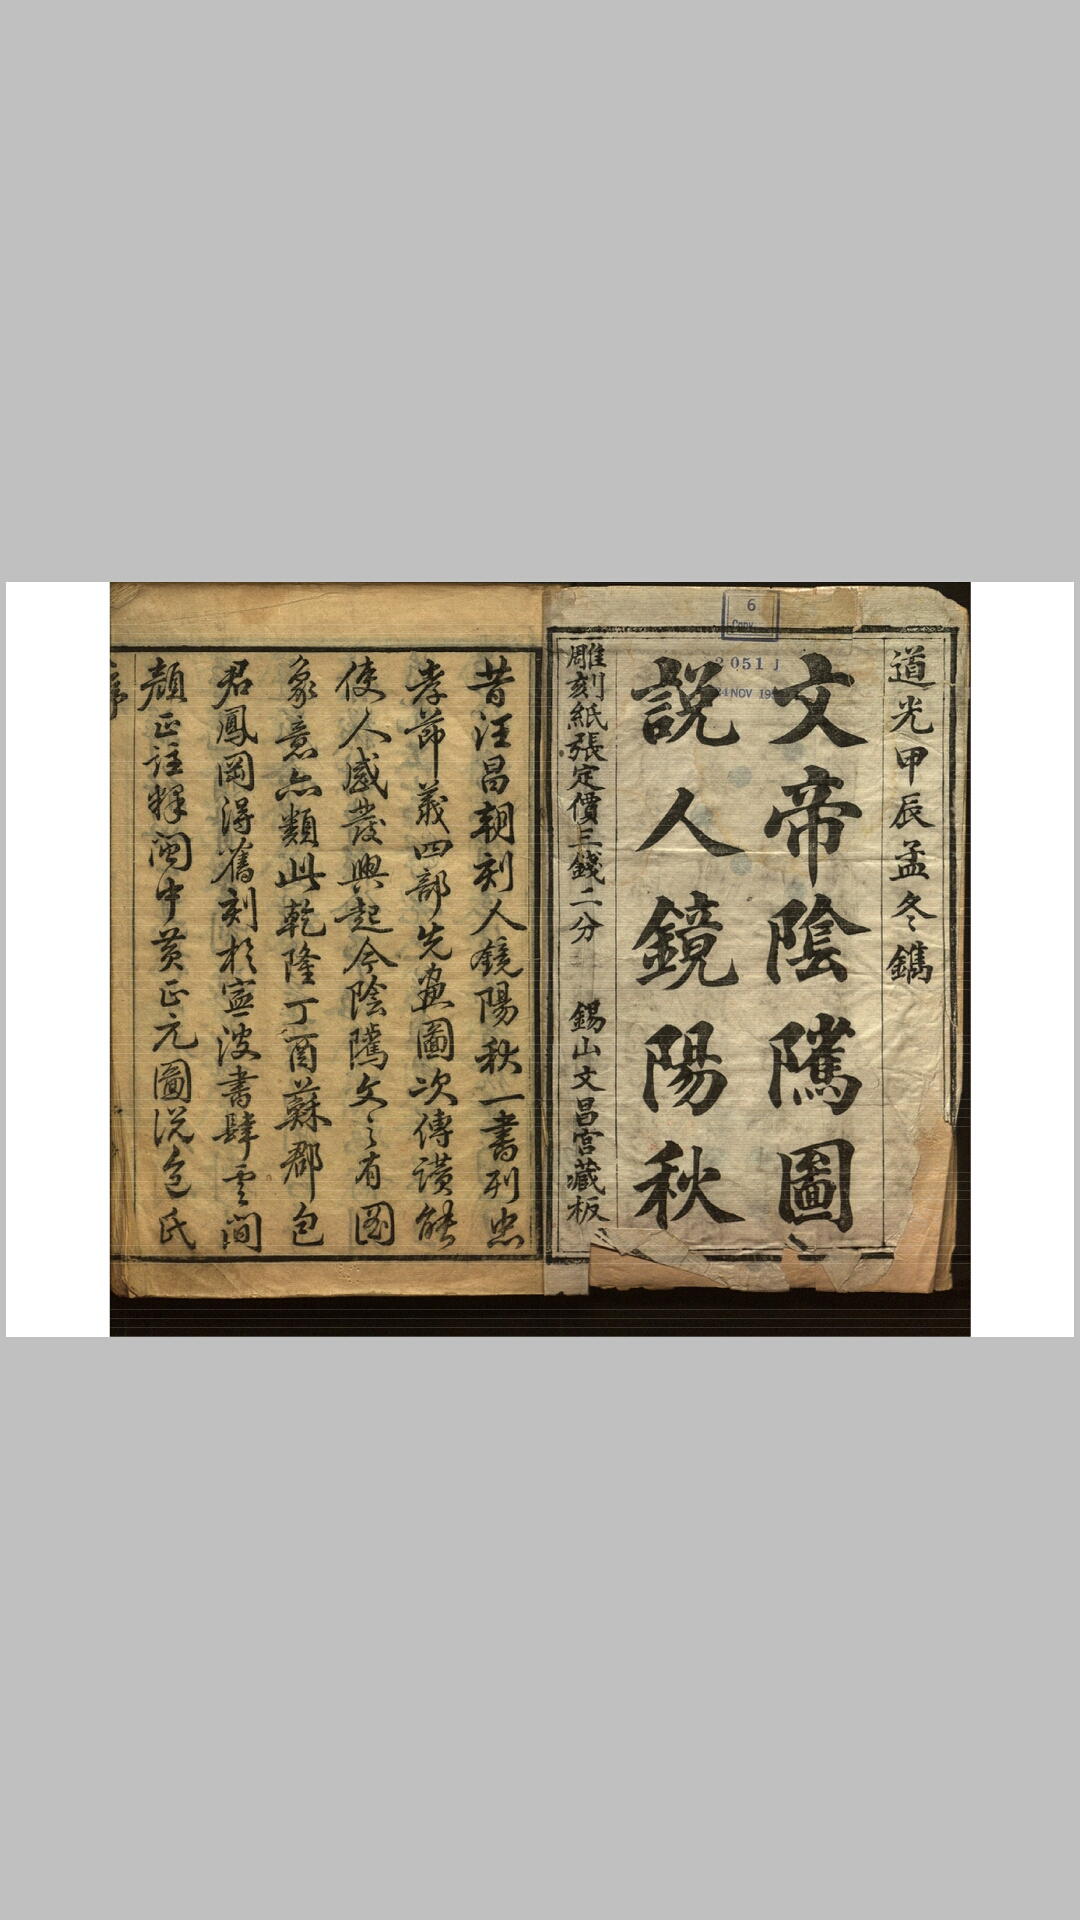 道光甲辰孟冬鐫
文帝陰隲圖
說人鏡陽秋
雕刻紙張定價三錢二分 錫山文昌宮藏板
6
Copy
2051 J
24 NOV 19
昔汪昌朝刻人鏡陽秋一書列忠
孝節義四部先畫圖次傳讚能
使人感發興起今陰隲文之有圖
象意亦類此乾隆丁酉蘇郡包
君鳳岡得舊刻於寧波書肆雲間
顏正註釋閩中黃正元圖說包氏
序